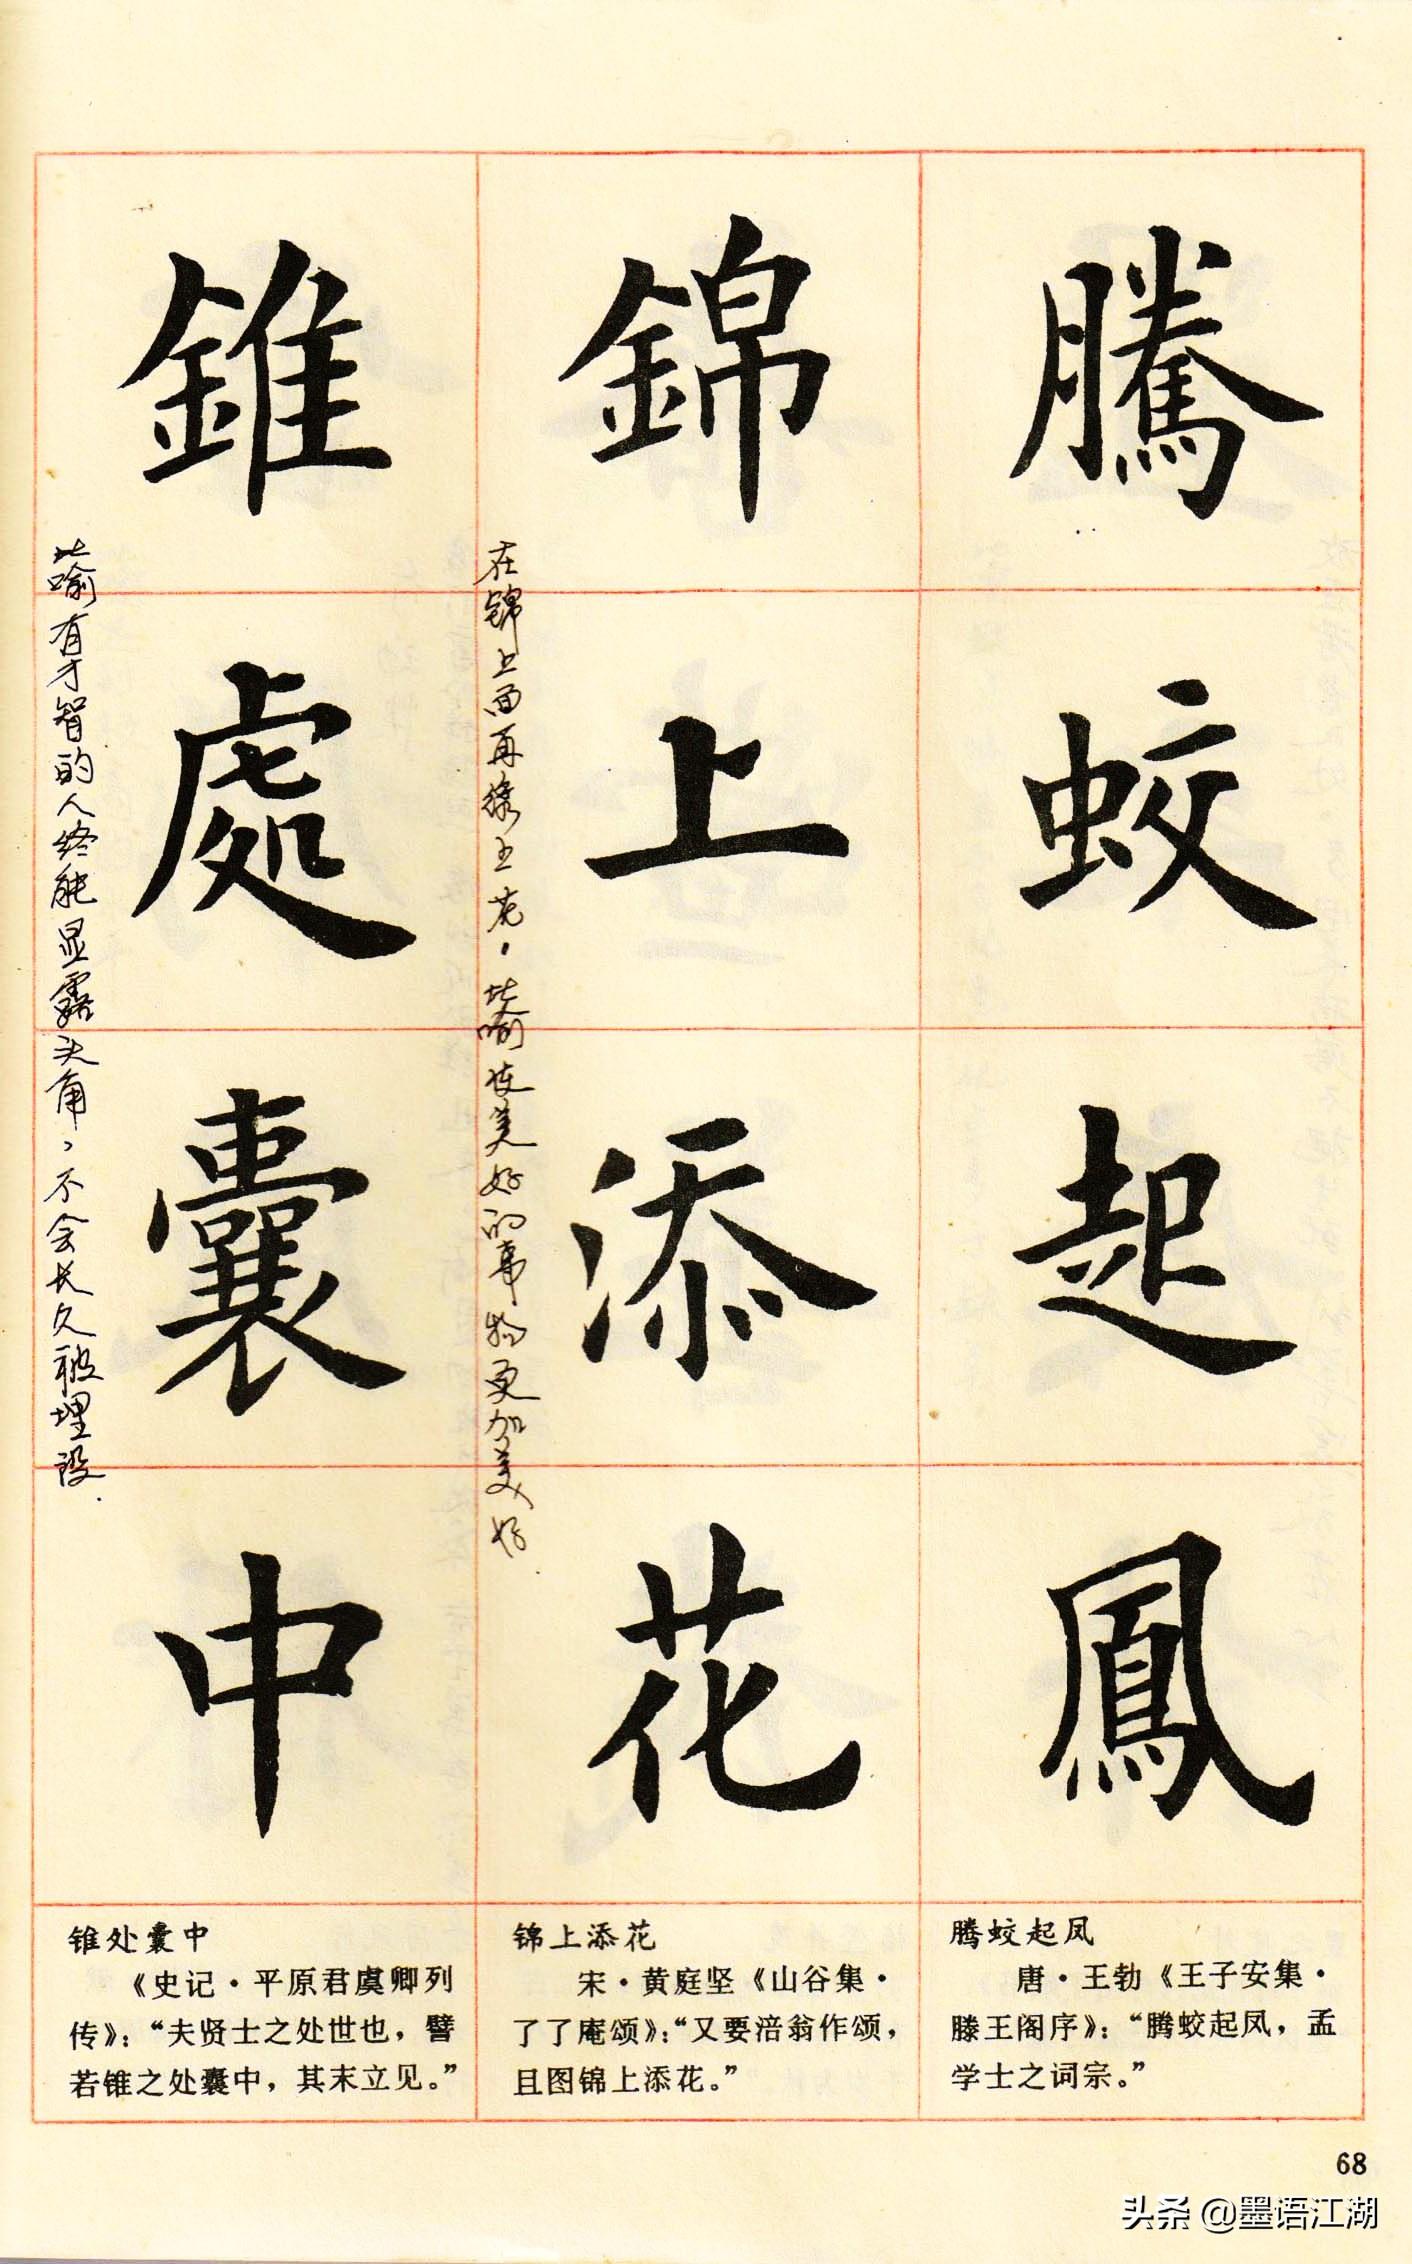 騰蛟起鳳
錦上添花
在锦上面再绣上花，比喻使美好的事物更加美好
錐處囊中
比喻有才智的人终能显露头角，不会长久被埋没.
腾蛟起凤
唐·王勃《王子安集·
滕王阁序》：“腾蛟起凤，孟
学士之词宗。”
锦上添花
宋·黄庭坚《山谷集·
了了庵颂》：“又要涪翁作颂，
且图锦上添花。”
锥处囊中
《史记·平原君虞卿列
传》：“夫贤士之处世也，譬
若锥之处囊中，其末立见。”
68
头条 @墨语江湖